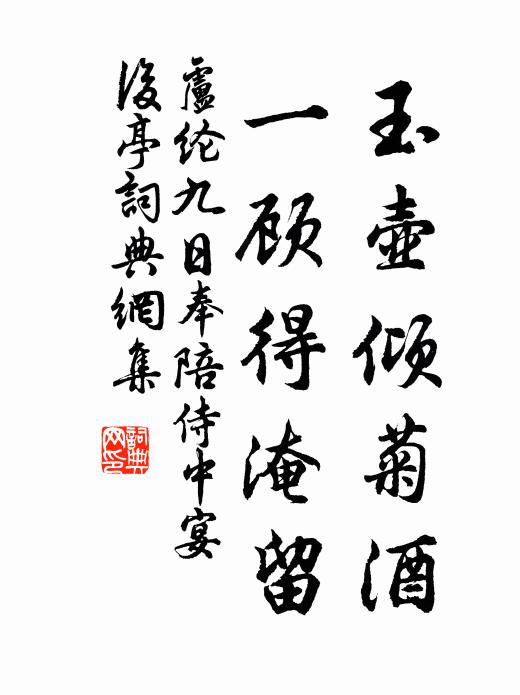 玉壺倾菊酒
一顾得淹留
盧纶九日奉陪侍中宴
後亭詞典網集
詞典网印